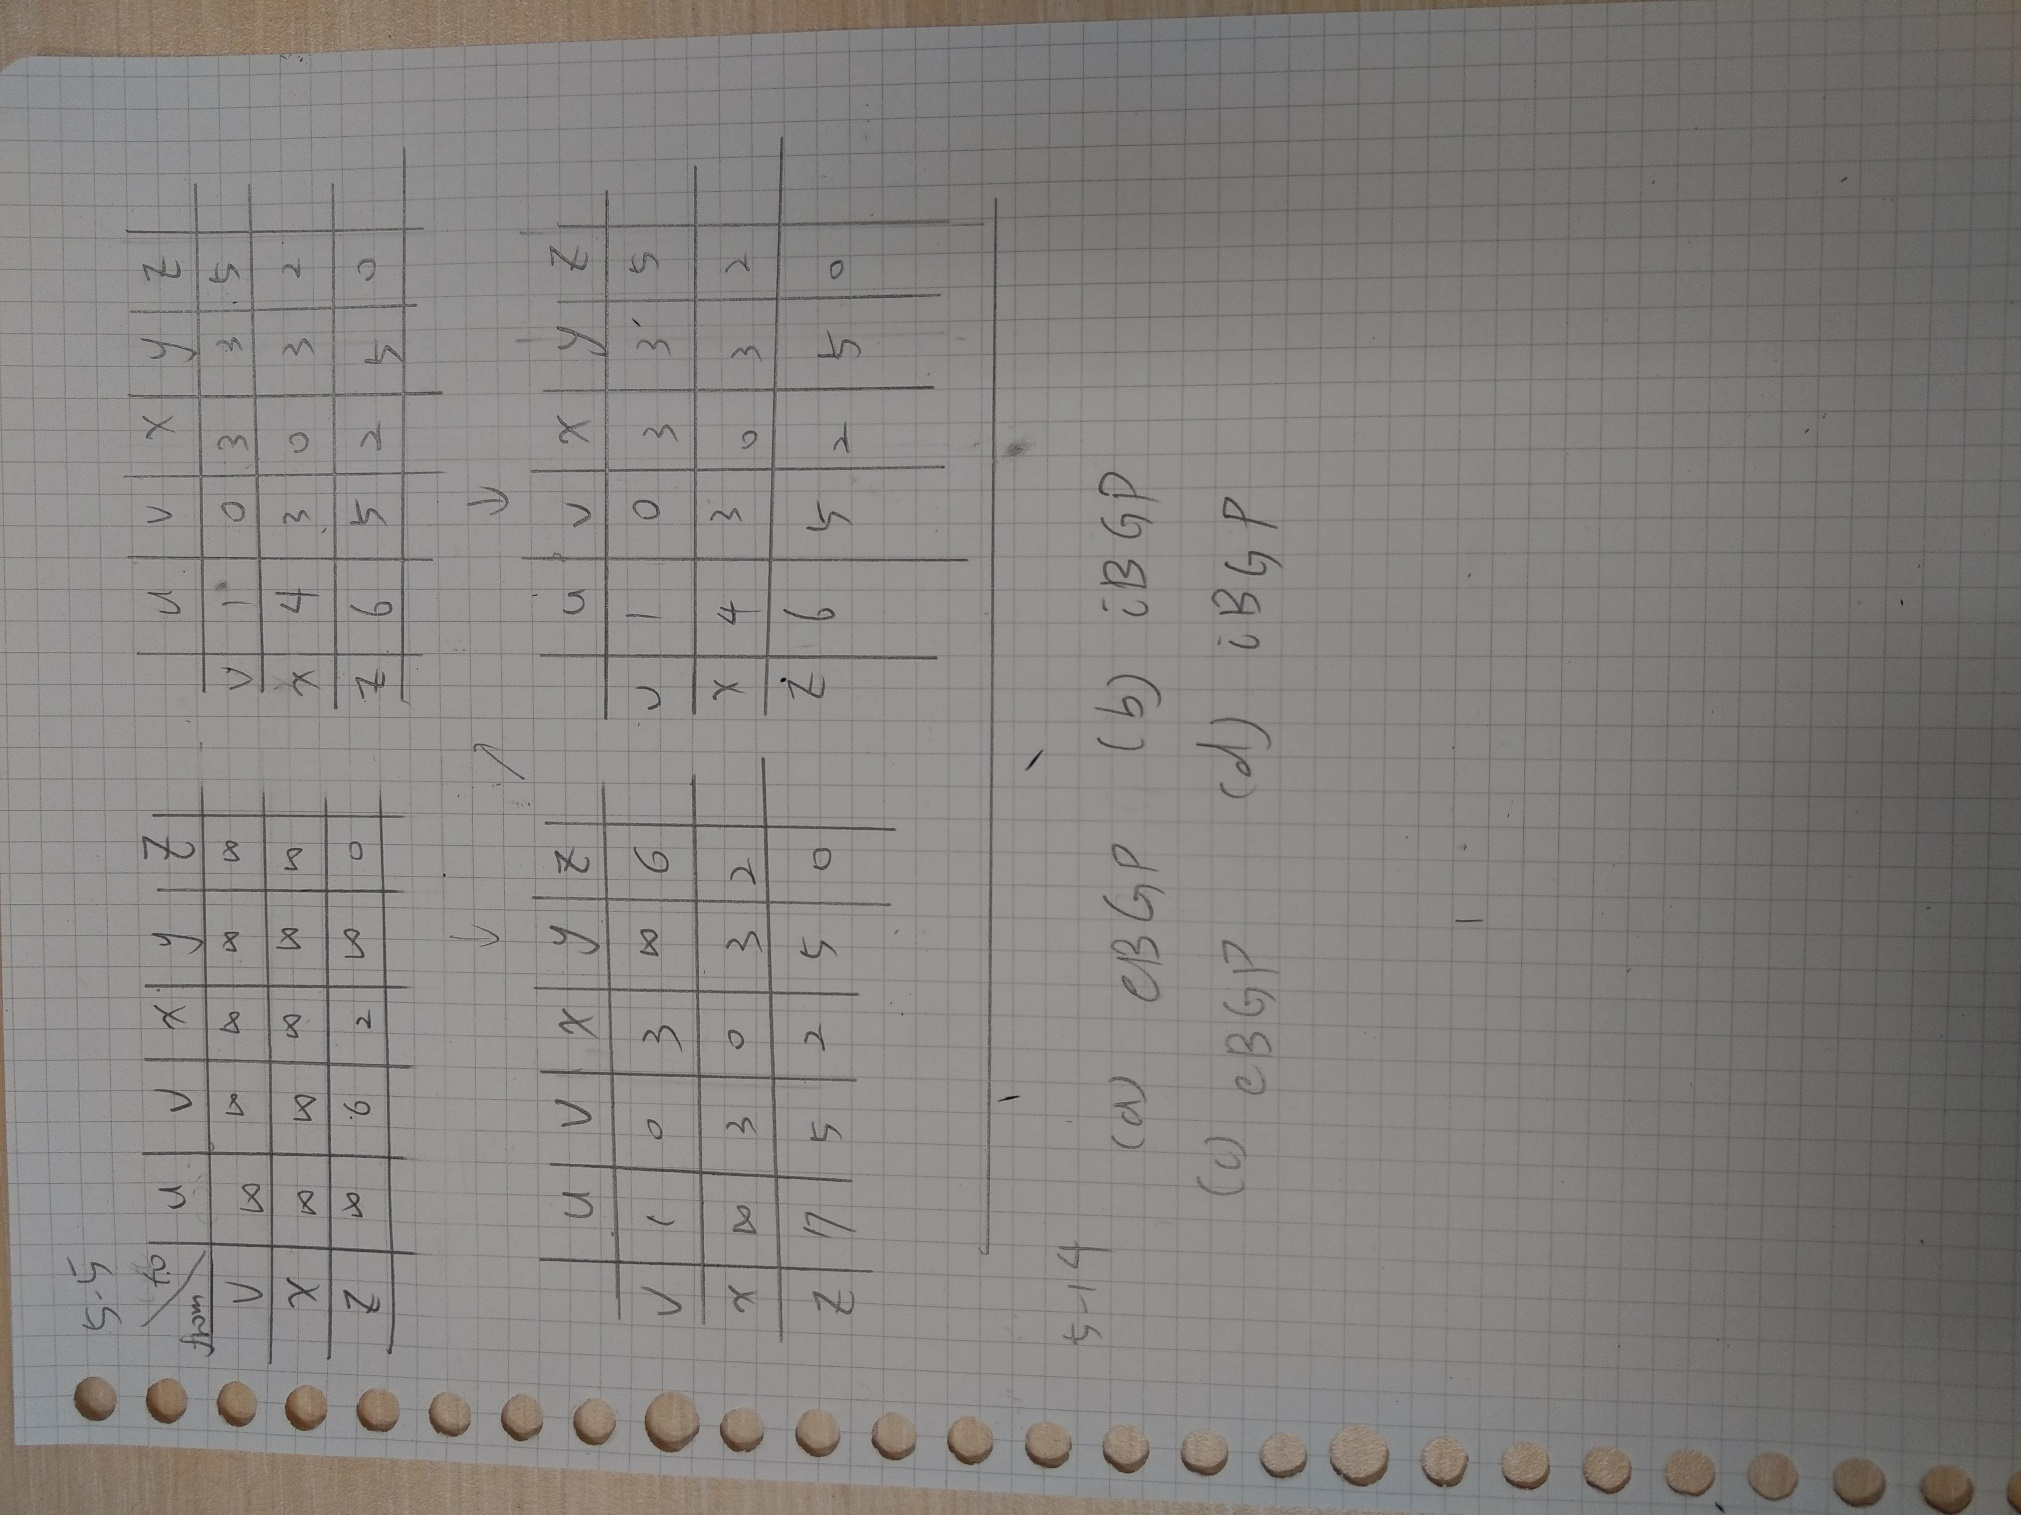 5-5
from to u v x y z
v ∞ ∞ ∞ ∞ ∞
x ∞ ∞ ∞ ∞ ∞
z ∞ 6 2 ∞ 0
↓
u v x y z
v 1 0 3 ∞ 6
x ∞ 3 0 3 2
z 7 5 2 5 0
↗
u v x y z
v 1 0 3 3 5
x 4 3 0 3 2
z 6 5 2 5 0
↓
u v x y z
v 1 0 3 3 5
x 4 3 0 3 2
z 6 5 2 5 0
5-14
(a) eBGP (b) iBGP
(c) eBGP (d) iBGP